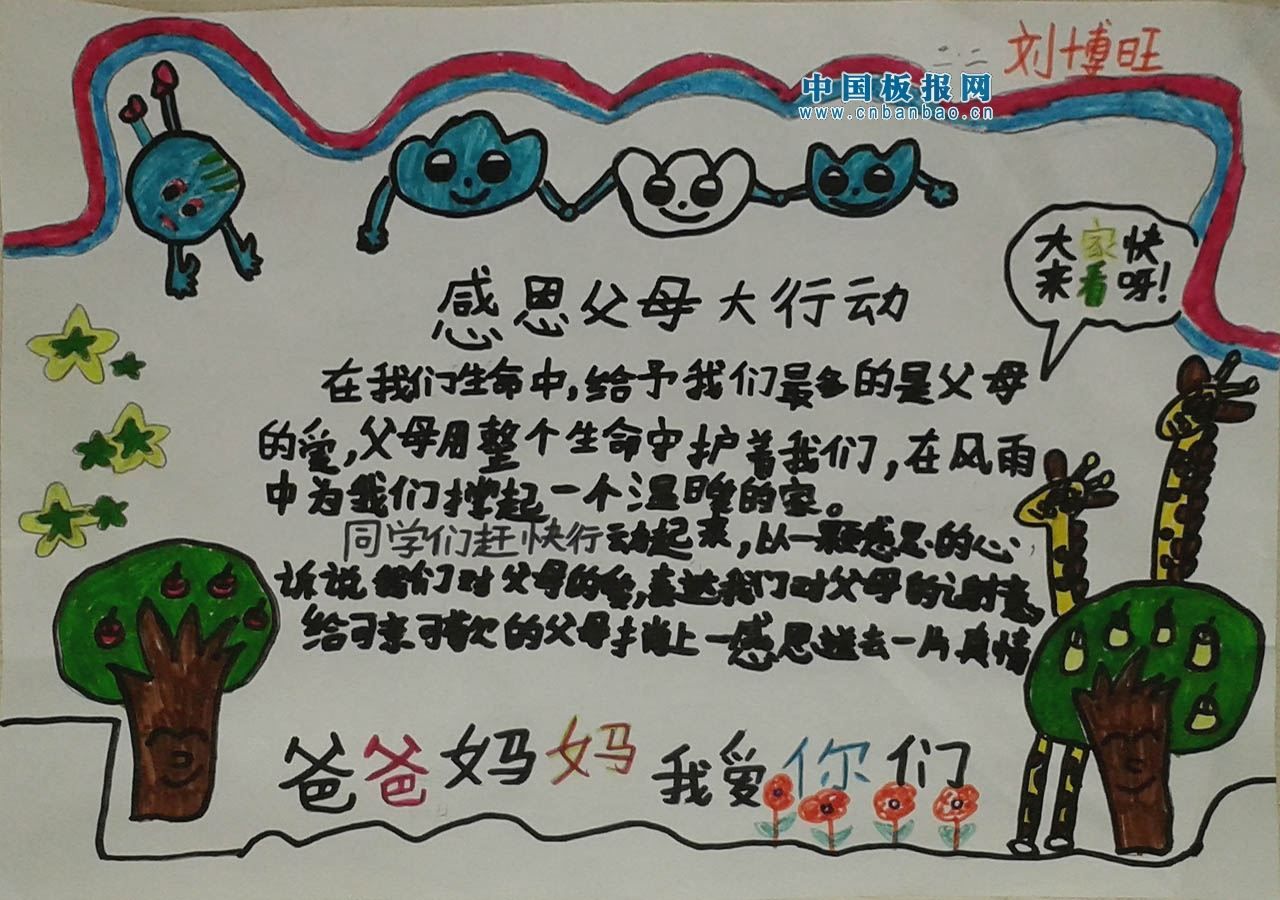 二.二 刘博旺
中国板报网
www.cnbanbao.cn
大家快
来看呀!
感恩父母大行动
在我们生命中,给予我们最多的是父母
的爱,父母用整个生命守护着我们,在风雨
中为我们撑起一个温暖的家。
同学们赶快行动起来,以一颗感恩的心,
诉说我们对父母的爱,表达我们对父母的谢意,
给可亲可敬的父母捎上一感恩送去一片真情
爸爸妈妈我爱你们